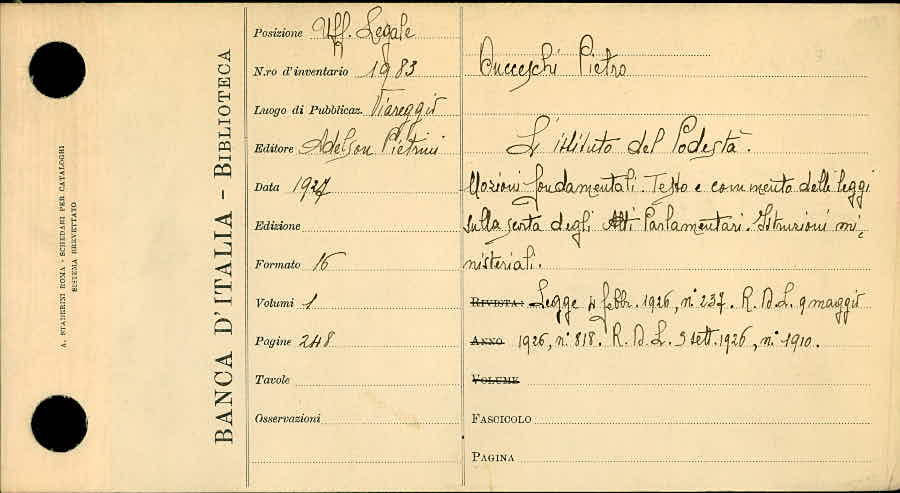 A. STADERINI ROMA - SCHEDARI PER CATALOGHI
SISTEMA BREVETTATO
BANCA D'ITALIA - BIBLIOTECA
Posizione Uff. Legale
N.ro d'inventario 1983
Luogo di Pubblicaz. Viareggio
Editore Adelson Pietrini
Data 1927
Edizione
Formato 16
Volumi 1
Pagine 248
Tavole
Osservazioni
Pietro
L'istituto del Podestà.
Nozioni fondamentali. Testo e commento delle leggi
sulla scorta degli Atti Parlamentari. Istruzioni mi-
nisteriali.
RIVISTA: Legge 4 febbr. 1926, n° 237. R. D. L. 9 maggio
ANNO 1926, n° 818. R. D. L. 3 sett. 1926, n° 1910.
VOLUME
FASCICOLO
PAGINA